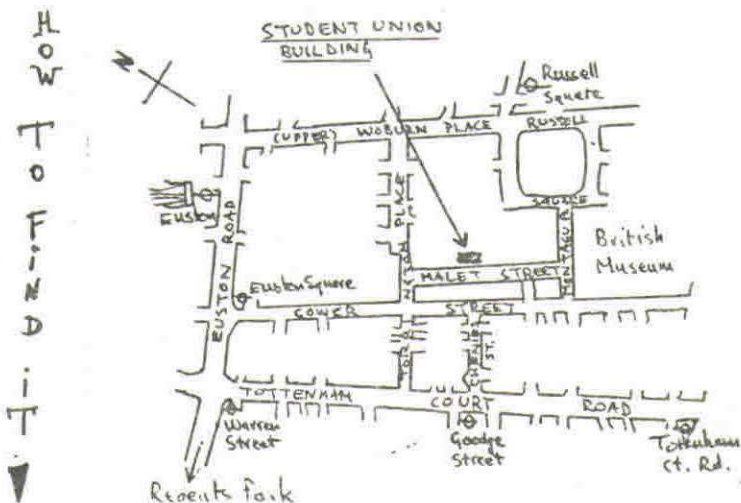 HOW TO FIND IT
STUDENT UNION
BUILDING
N
Russell
Square
(UPPER) WOBURN PLACE
RUSSELL
SQUARE
Euston
EUSTON ROAD
TORRINGTON PLACE
MONTAGUE
British
Museum
MALET STREET
Euston Square
GOWER STREET
CHENIES
ST.
TOTTENHAM COURT ROAD
Warren
Street
Goodge
Street
Tottenham
Ct. Rd.
Regents Park